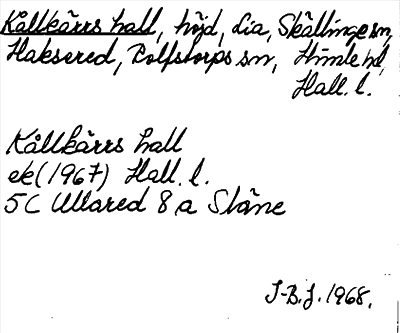 Kållkärrs hall, höjd, Lia, Skällinge sn,
Haksered, Rolfstorps sn, Himle hd,
Hall. l.
Kållkärrs hall
ek (1967) Hall. l.
5C Ullared 8 a Släne
J-B.J. 1968.